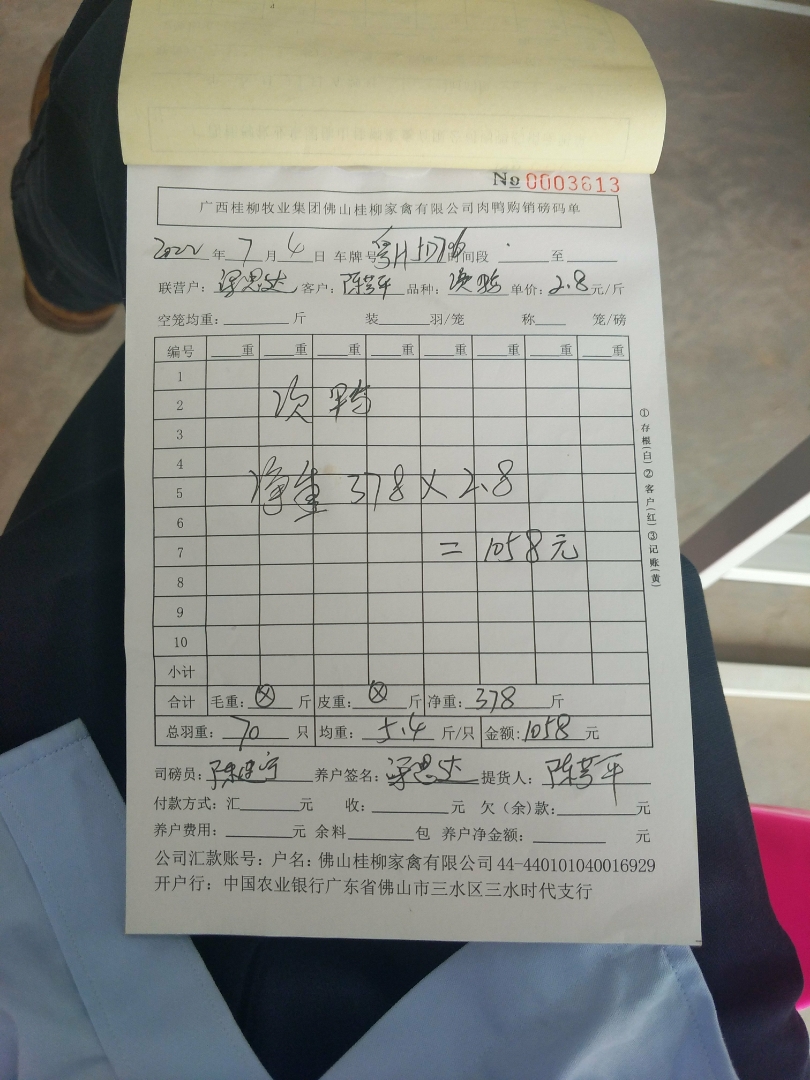 No 0003613
广西桂柳牧业集团佛山桂柳家禽有限公司肉鸭购销磅码单
2022年7月4日 车牌号 时间段 至
联营户：梁思达 客户：陈芳平 品种：次鸭 单价：2.8元/斤
空笼均重： 斤 装 羽/笼 称 笼/磅
编号 重 重 重 重 重 重 重 重
1
2 次鸭
3
4
5 净重 378×2.8
6
7 =1058元
8
9
10
小计
合计 毛重：⊗斤 皮重：⊗斤 净重：378斤
总羽重：70只 均重：5.4斤/只 金额：1058元
司磅员： 养户签名：梁思达 提货人：陈芳平
付款方式：汇 元 收： 元 欠（余）款： 元
养户费用： 元 余料 包 养户净金额： 元
公司汇款账号：户名：佛山桂柳家禽有限公司 44-440101040016929
开户行：中国农业银行广东省佛山市三水区三水时代支行
①存根(白)②客户(红)③记账(黄)